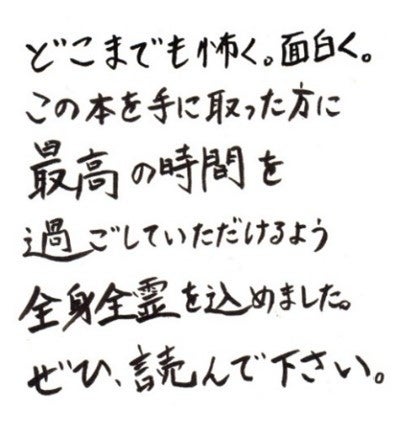 どこまでも怖く。面白く。
この本を手に取った方に
最高の時間を
過ごしていただけるよう
全身全霊を込めました。
ぜひ、読んで下さい。